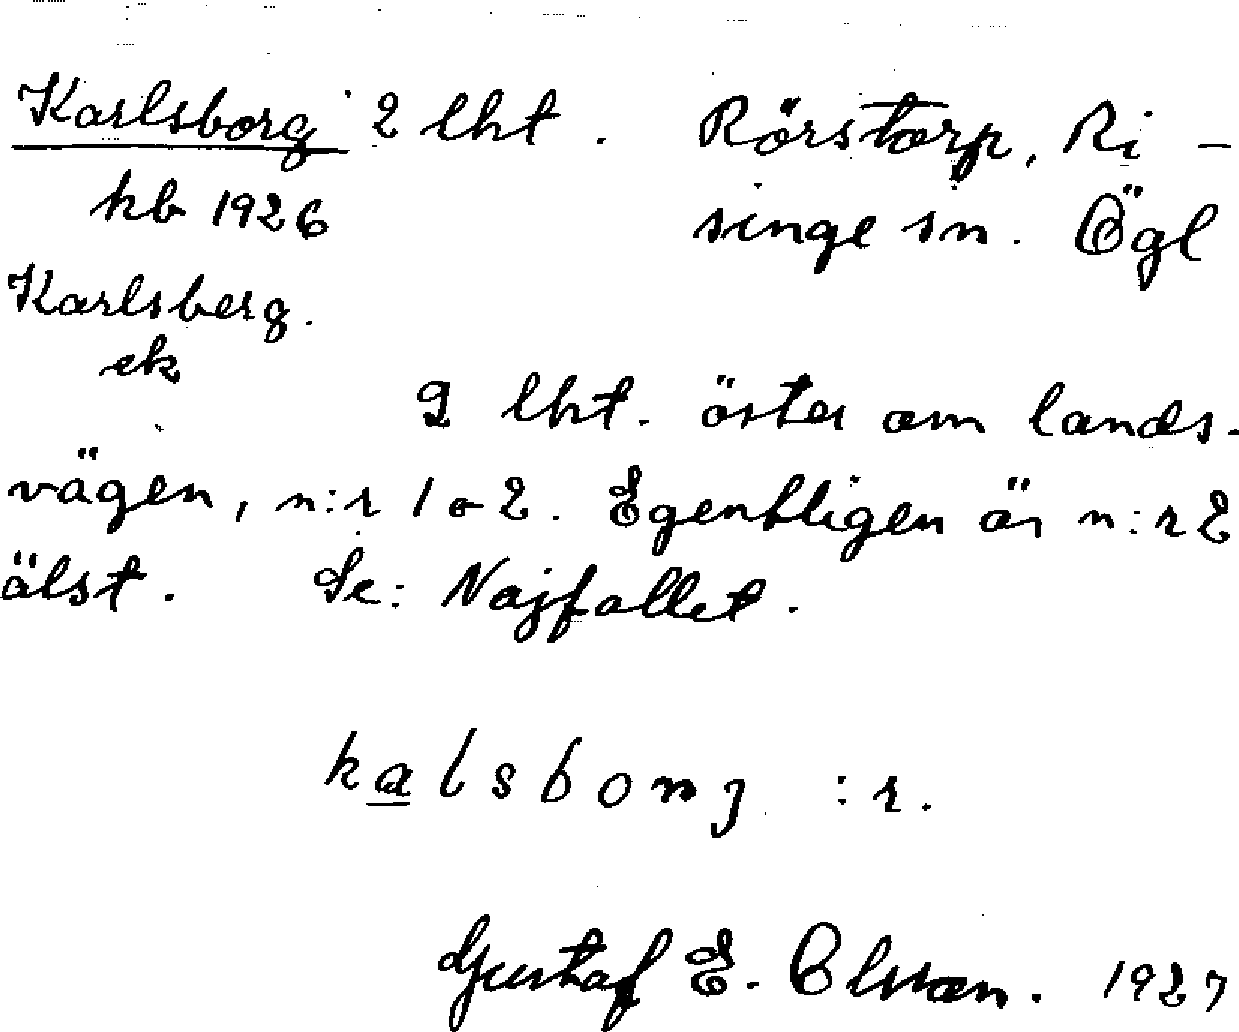 Karlsborg 2 lht. Rörstorp, Ri-
kb 1926 singe sn. Ögl
Karlsberg.
ek
2 lht. öster om lands-
vägen, n:r 1 o 2. Egentligen är n:r 2
älst. Se: Najfallet.
kalsborȷ :r.
Gustaf E. Olsson. 1927